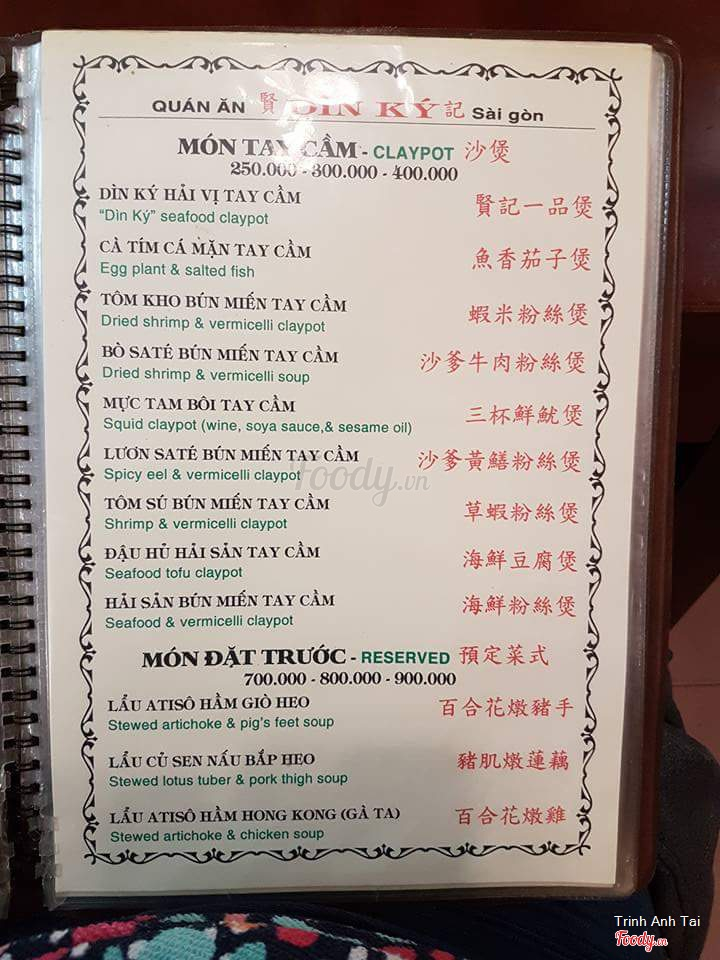 QUÁN ĂN 賢 DÌN KÝ 記 Sài gòn
MÓN TAY CẦM - CLAYPOT 沙煲
250.000 - 300.000 - 400.000
DÌN KÝ HẢI VỊ TAY CẦM 賢記一品煲
"Dìn Ký" seafood claypot
CÀ TÍM CÁ MẶN TAY CẦM 魚香茄子煲
Egg plant & salted fish
TÔM KHO BÚN MIẾN TAY CẦM 蝦米粉絲煲
Dried shrimp & vermicelli claypot
BÒ SATÉ BÚN MIẾN TAY CẦM 沙爹牛肉粉絲煲
Dried shrimp & vermicelli soup
MỰC TAM BÔI TAY CẦM 三杯鮮魷煲
Squid claypot (wine, soya sauce,& sesame oil)
LƯƠN SATÉ BÚN MIẾN TAY CẦM 沙爹黃鱔粉絲煲
Spicy eel & vermicelli claypot
TÔM SÚ BÚN MIẾN TAY CẦM 草蝦粉絲煲
Shrimp & vermicelli claypot
ĐẬU HỦ HẢI SẢN TAY CẦM 海鮮豆腐煲
Seafood tofu claypot
HẢI SẢN BÚN MIẾN TAY CẦM 海鮮粉絲煲
Seafood & vermicelli claypot
MÓN ĐẶT TRƯỚC - RESERVED 預定菜式
700.000 - 800.000 - 900.000
LẨU ATISÔ HẦM GIÒ HEO 百合花燉豬手
Stewed artichoke & pig's feet soup
LẨU CỦ SEN NẤU BẮP HEO 豬肌燉蓮藕
Stewed lotus tuber & pork thigh soup
LẨU ATISÔ HẦM HONG KONG (GÀ TA) 百合花燉雞
Stewed artichoke & chicken soup
Foody.vn
Trinh Anh Tai
Foody.vn